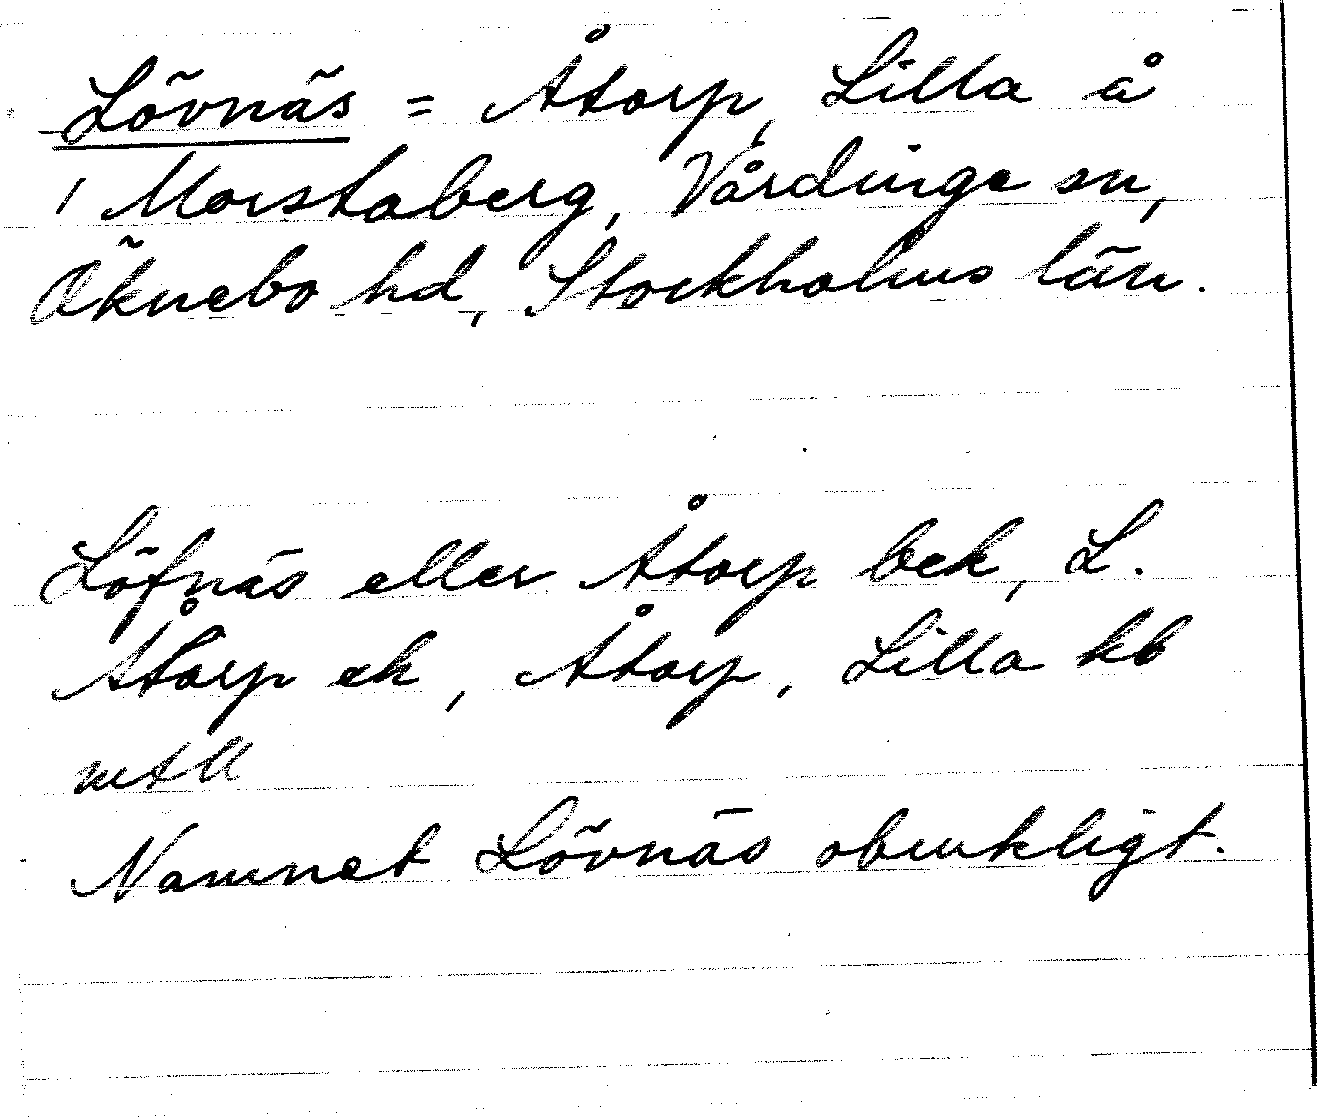 Lövnäs = Åtorp, Lilla å
1 Morstaberg, Vårdinge sn,
Öknebo hd, Stockholms län.
Löfnäs eller Åtorp bek, L.
Åtorp ek, Åtorp, Lilla kb
mtll
Namnet Lövnäs obrukligt.